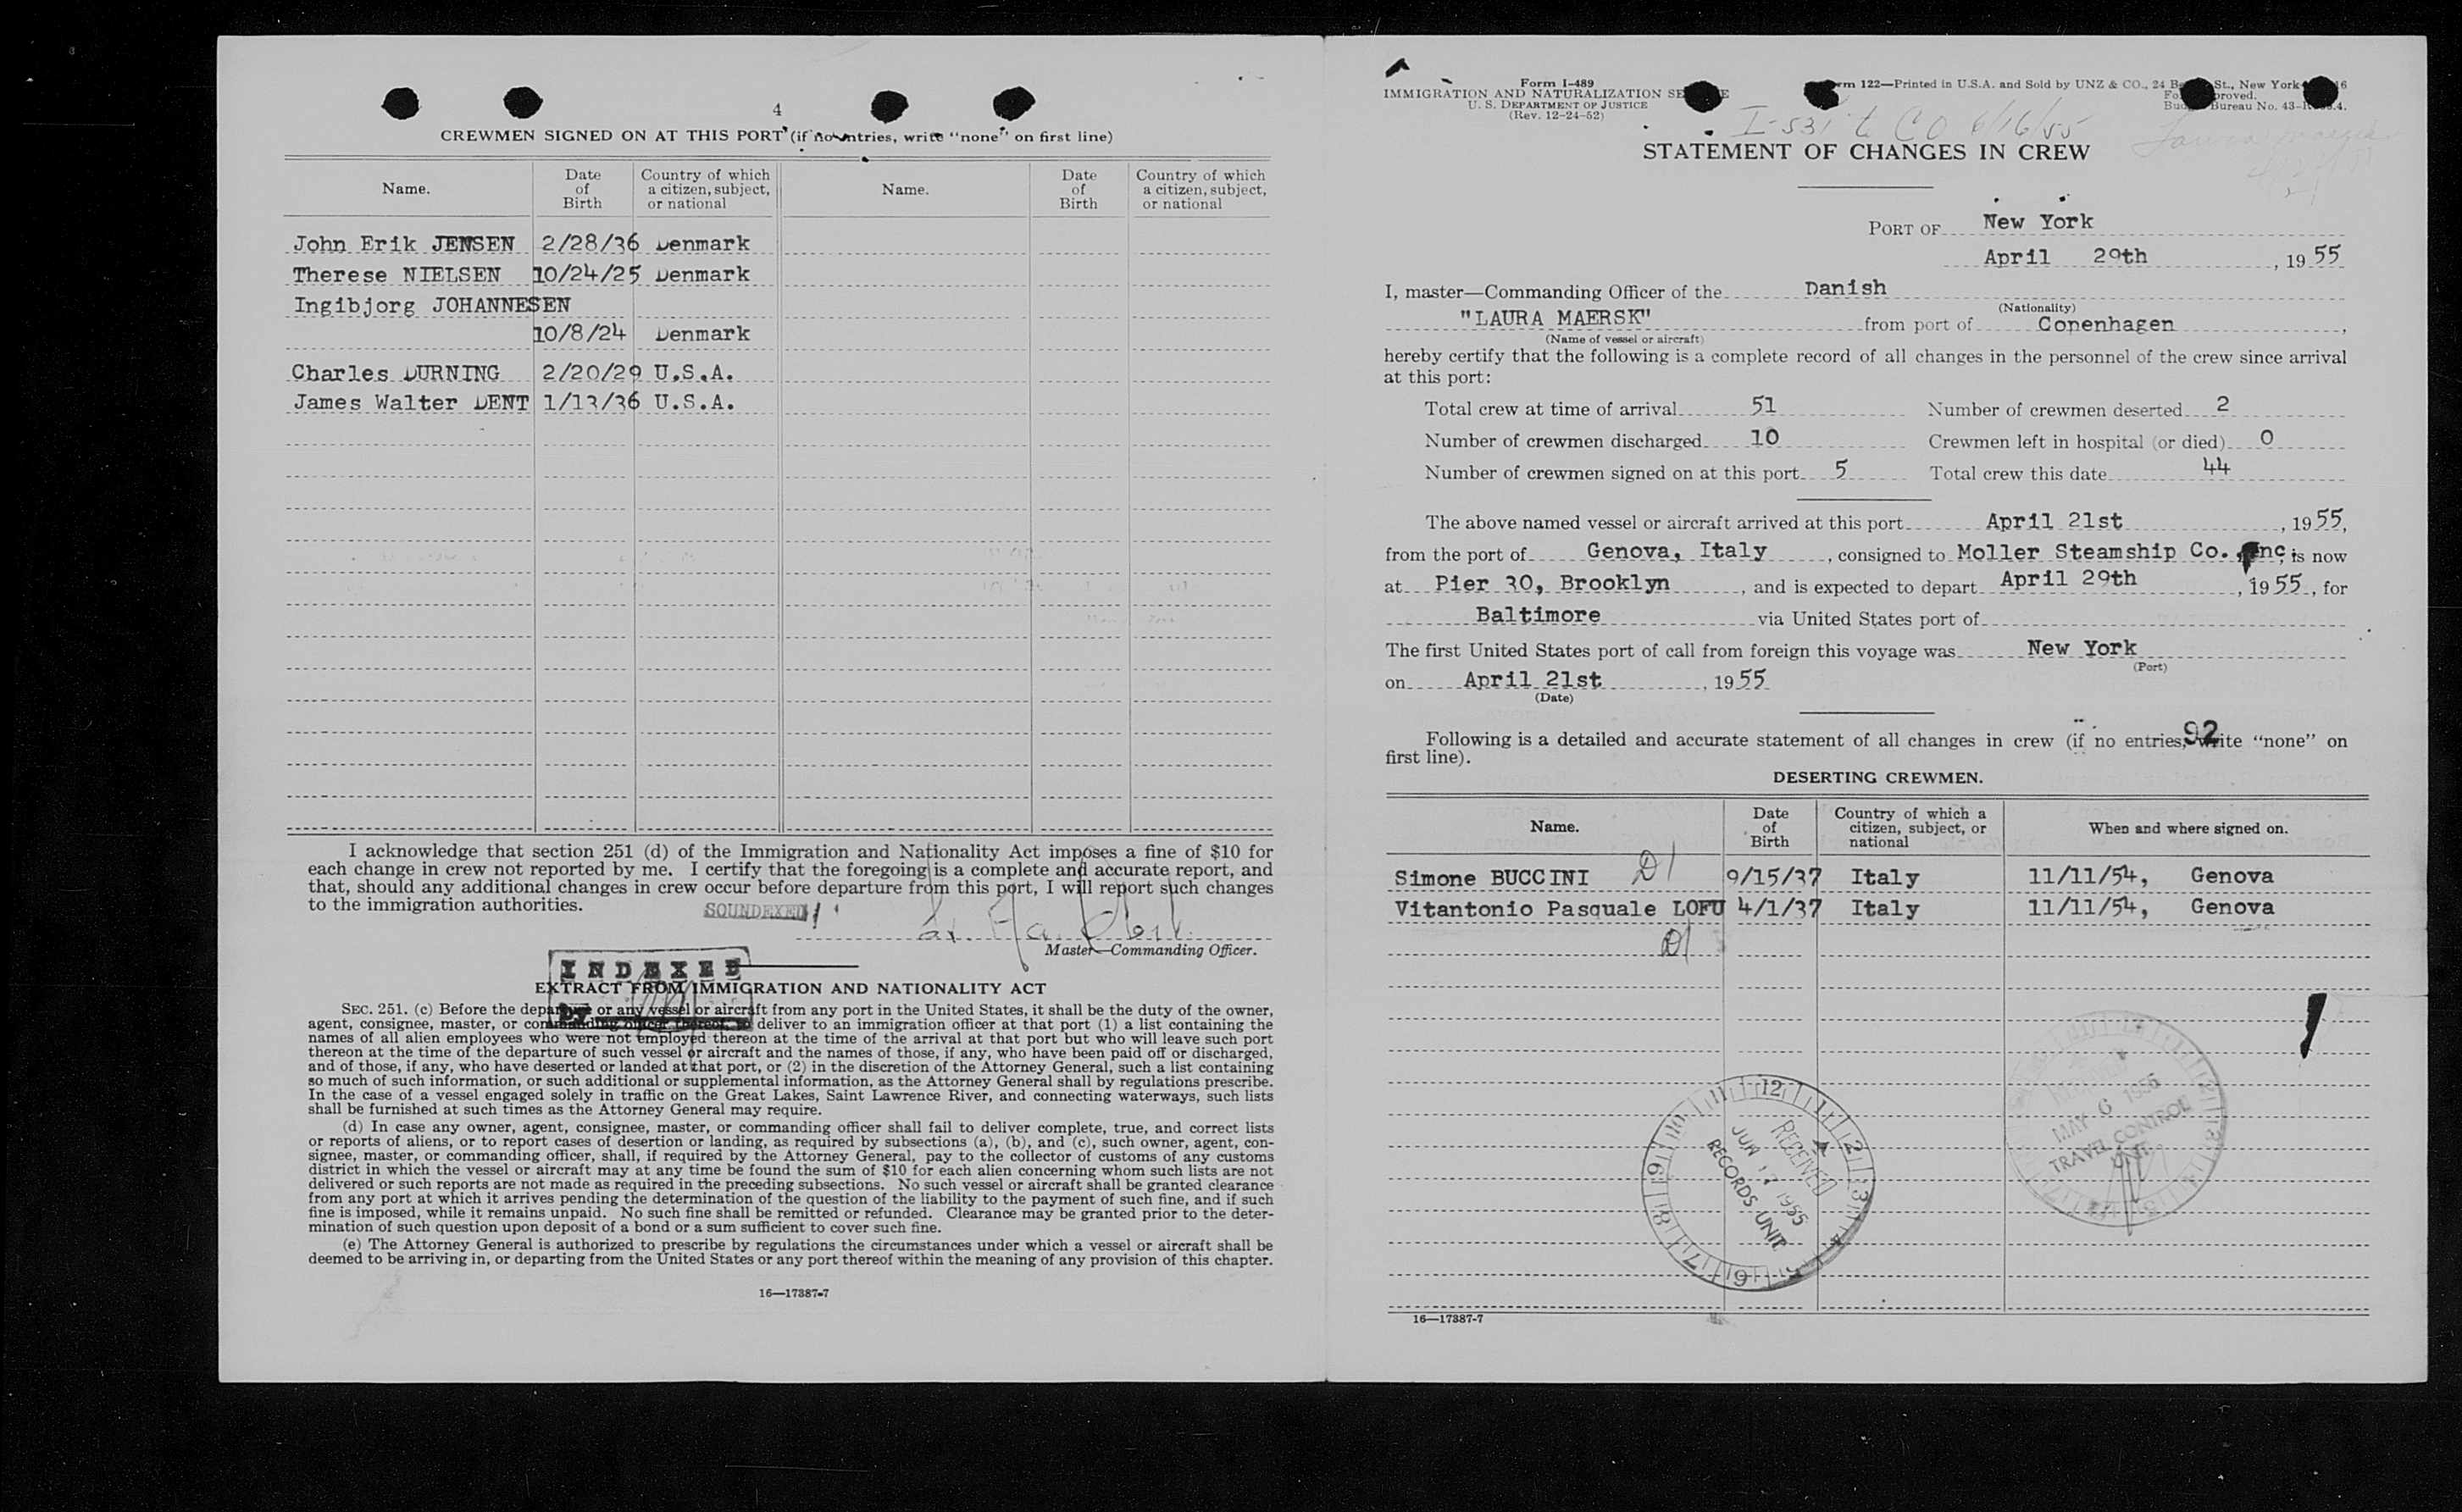 4
CREWMEN SIGNED ON AT THIS PORT (if no entries, write "none" on first line)
Name. Date of Birth Country of which a citizen, subject, or national Name. Date of Birth Country of which a citizen, subject, or national
John Erik JENSEN 2/28/36 Denmark
Therese NIELSEN 10/24/25 Denmark
Ingibjorg JOHANNESEN
10/8/24 Denmark
Charles DURNING 2/20/29 U.S.A.
James Walter DENT 1/13/36 U.S.A.
I acknowledge that section 251 (d) of the Immigration and Nationality Act imposes a fine of $10 for
each change in crew not reported by me. I certify that the foregoing is a complete and accurate report, and
that, should any additional changes in crew occur before departure from this port, I will report such changes
to the immigration authorities.
SOUNDEXED
Master—Commanding Officer.
INDEXED
EXTRACT FROM IMMIGRATION AND NATIONALITY ACT
SEC. 251. (c) Before the departure or any vessel or aircraft from any port in the United States, it shall be the duty of the owner,
agent, consignee, master, or commanding officer thereof, to deliver to an immigration officer at that port (1) a list containing the
names of all alien employees who were not employed thereon at the time of the arrival at that port but who will leave such port
thereon at the time of the departure of such vessel or aircraft and the names of those, if any, who have been paid off or discharged,
and of those, if any, who have deserted or landed at that port, or (2) in the discretion of the Attorney General, such a list containing
so much of such information, or such additional or supplemental information, as the Attorney General shall by regulations prescribe.
In the case of a vessel engaged solely in traffic on the Great Lakes, Saint Lawrence River, and connecting waterways, such lists
shall be furnished at such times as the Attorney General may require.
(d) In case any owner, agent, consignee, master, or commanding officer shall fail to deliver complete, true, and correct lists
or reports of aliens, or to report cases of desertion or landing, as required by subsections (a), (b), and (c), such owner, agent, con-
signee, master, or commanding officer, shall, if required by the Attorney General, pay to the collector of customs of any customs
district in which the vessel or aircraft may at any time be found the sum of $10 for each alien concerning whom such lists are not
delivered or such reports are not made as required in the preceding subsections. No such vessel or aircraft shall be granted clearance
from any port at which it arrives pending the determination of the question of the liability to the payment of such fine, and if such
fine is imposed, while it remains unpaid. No such fine shall be remitted or refunded. Clearance may be granted prior to the deter-
mination of such question upon deposit of a bond or a sum sufficient to cover such fine.
(e) The Attorney General is authorized to prescribe by regulations the circumstances under which a vessel or aircraft shall be
deemed to be arriving in, or departing from the United States or any port thereof within the meaning of any provision of this chapter.
16—17387-7
Form I-489
IMMIGRATION AND NATURALIZATION SERVICE
U. S. DEPARTMENT OF JUSTICE
(Rev. 12-24-52)
122—Printed in U.S.A. and Sold by UNZ & CO., 24 St., New York
Bureau No. 43-
I-531 to CO 6/16/55
STATEMENT OF CHANGES IN CREW
PORT OF New York
April 29th, 1955
I, master—Commanding Officer of the Danish
(Nationality)
"LAURA MAERSK" from port of Copenhagen,
(Name of vessel or aircraft)
hereby certify that the following is a complete record of all changes in the personnel of the crew since arrival
at this port:
Total crew at time of arrival 51 Number of crewmen deserted 2
Number of crewmen discharged 10 Crewmen left in hospital (or died) 0
Number of crewmen signed on at this port 5 Total crew this date 44
The above named vessel or aircraft arrived at this port April 21st, 1955,
from the port of Genova, Italy, consigned to Moller Steamship Co. Inc, is now
at Pier 30, Brooklyn, and is expected to depart April 29th, 1955, for
Baltimore via United States port of
The first United States port of call from foreign this voyage was New York
(Port)
on April 21st, 1955
(Date)
92
Following is a detailed and accurate statement of all changes in crew (if no entries, write "none" on
first line).
DESERTING CREWMEN.
Name. Date of Birth Country of which a citizen, subject, or national When and where signed on.
Simone BUCCINI D1 9/15/37 Italy 11/11/54, Genova
Vitantonio Pasquale LOFU 4/1/37 Italy 11/11/54, Genova
D1
RECEIVED
JUN 17 1955
RECORDS UNIT
MAY 6 1955
TRAVEL CONTROL
UNIT
16—17387-7